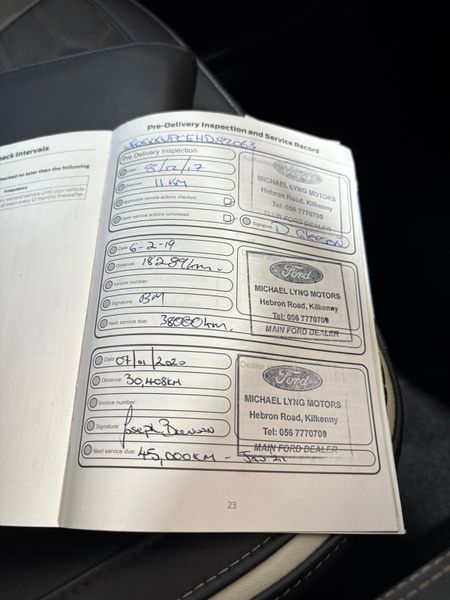 eck intervals
ecked no later than the following
FREQUENCY
ry second service until your vehicle
at least every 12 months thereafter
Pre-Delivery Inspection and Service Record
Pre Delivery Inspection
Date: 8/12/17
Distance: 11 KM
Applicable service actions checked:
Open service actions completed:
Ford
MICHAEL LYNG MOTORS
Hebron Road, Kilkenny
Tel: 056 7770700
MAIN FORD DEALER
Signature: D Gleeson
Date: 6-2-19
Distance: 18289km.
Invoice number:
Signature: BM
Next service due: 38000km.
Ford
MICHAEL LYNG MOTORS
Hebron Road, Kilkenny
Tel: 056 7770700
MAIN FORD DEALER
Date: 07/01/2020
Distance: 30,408KM
Invoice number:
Signature: Joseph Brennan
Next service due: 45,000KM - Jan 21
Dealer
Ford
MICHAEL LYNG MOTORS
Hebron Road, Kilkenny
Tel: 056 7770700
MAIN FORD DEALER
23